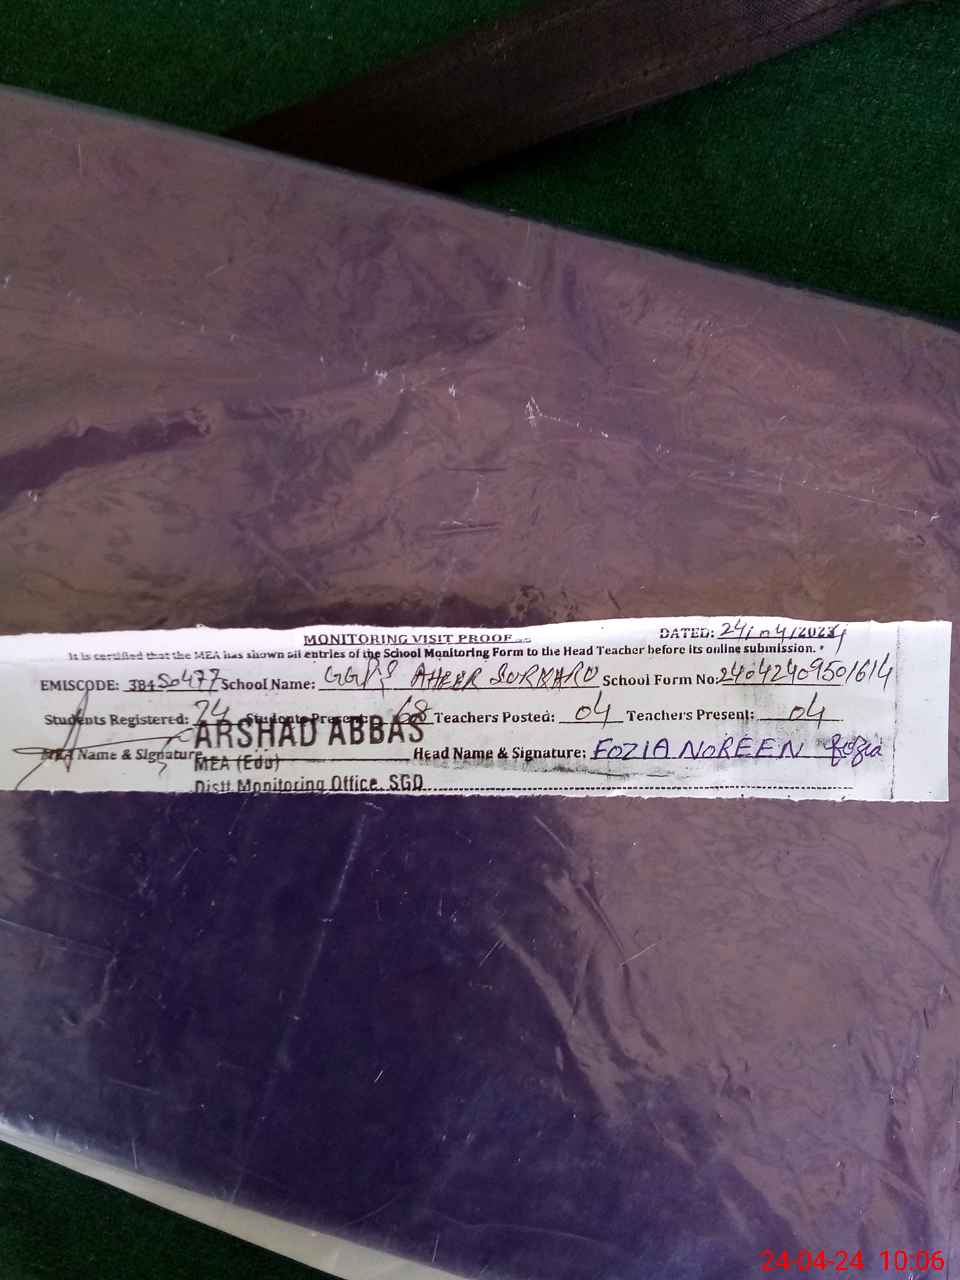 MONITORING VISIT PROOF
DATED: 24/04/2024
It is certified that the MEA has shown all entries of the School Monitoring Form to the Head Teacher before its online submission.
EMISCODE: 38450477 School Name: GGPS AHEER School Form No: 24042409501614
Students Registered: 74 Students Present: 68 Teachers Posted: 04 Teachers Present: 04
ARSHAD ABBAS
MEA Name & Signature Head Name & Signature: FOZIA NOREEN fozia
MEA (Edu)
Distt Monitoring Office, SGD
24-04-24 10:06